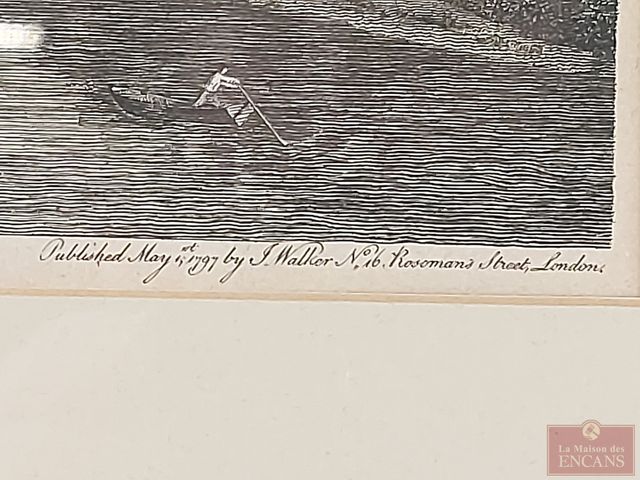 Published May 1st, 1797 by J. Walker No. 16. Rosoman's Street, London.
La Maison des
ENCANS